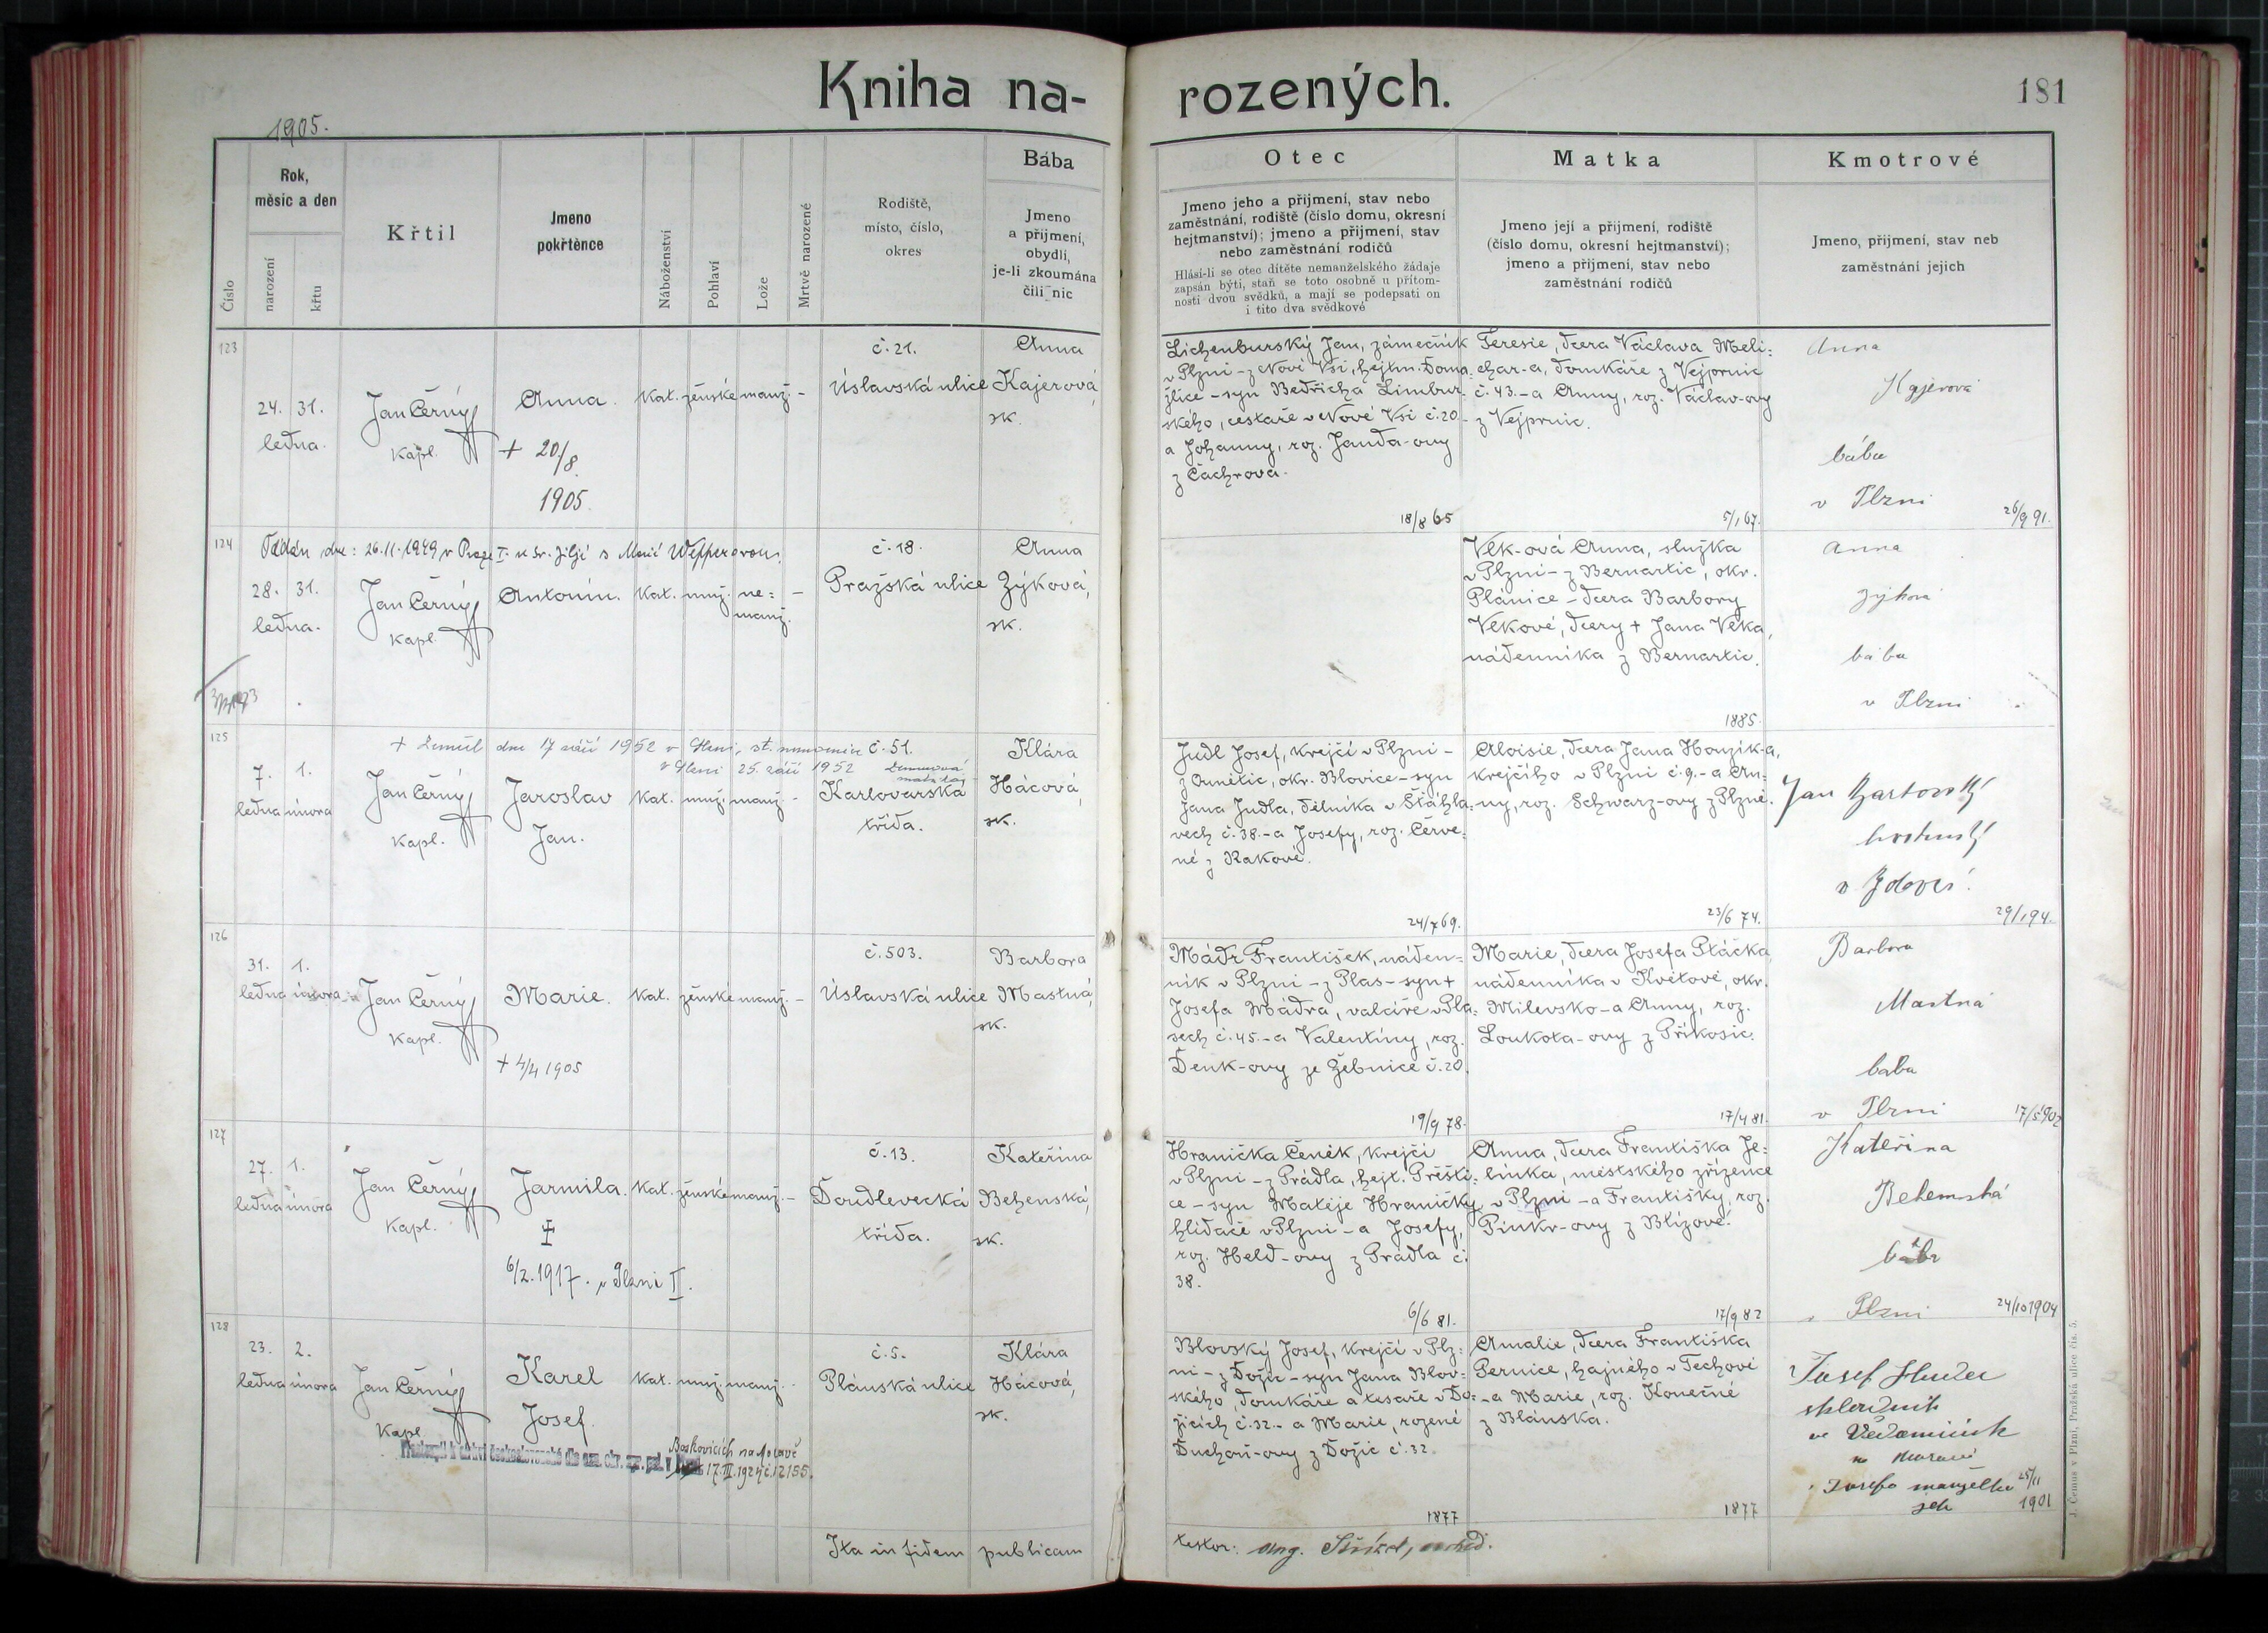 Kniha na-
rozených.
181
1905.
Číslo
Rok,
měsíc a den
narození
křtu
Křtil
Jmeno
pokřtěnce
Náboženství
Pohlaví
Lože
Mrtvě narozené
Rodiště,
místo, číslo,
okres
Bába
Jmeno
a příjmení,
obydlí,
je-li zkoumána
čili nic
Otec
Jmeno jeho a příjmení, stav nebo
zaměstnání, rodiště (číslo domu, okresní
hejtmanství); jmeno a příjmení, stav
nebo zaměstnání rodičů
Hlásí-li se otec dítěte nemanželského žádaje
zapsán býti, staň se toto osobně u přítom-
nosti dvou svědků, a mají se podepsati on
i tito dva svědkové
Matka
Jmeno její a příjmení, rodiště
(číslo domu, okresní hejtmanství);
jmeno a příjmení, stav nebo
zaměstnání rodičů
Kmotrové
Jmeno, příjmení, stav neb
zaměstnání jejich
123
24. 31.
ledna.
Jan Černý
kapl.
Anna.
+ 20/8.
1905
kat. ženské manž. -
č. 21.
Úslavská ulice
Anna
Kajerová,
sk.
Lichenburský Jan, zámečník
v Plzni - z Nové Vsi, hejtm. Doma-
žlice - syn Bedřicha Limbur-
ského, cestáře v Nové Vsi č. 20-
a Johanny, roz. Janda-ovy
z Čachrova.
18/8 65
Teresie, dcera Václava Meli=
char-a, domkáře z Vejprnic
č. 43.-a Anny, roz. Václav-ovy
z Vejprnic.
5/1 67.
Anna
Kajerová
bába
v Plzni
26/9 91.
124
Oddán dne: 26.11.1949 v Praze I. u sv. Jiljí s Marií
28. 31.
ledna.
Jan Černý
kapl.
Antonín.
kat. muž. ne=
manž.
-
č. 18.
Pražská ulice
Anna
Zýková,
sk.
Vlk-ová Anna, služka
v Plzni - z Bernartic, okr.
Plánice - dcera Barbory
Vlkové, dcery + Jana Vlka,
nádenníka z Bernartic.
1885.
Anna
Zýková
bába
v Plzni
125
+ Zemřel dne 17 září 1952 v Plzni, st. nemocnice
v Plzni 25. září 1952
7. 1.
ledna února
Jan Černý
kapl.
Jaroslav
Jan.
kat. muž. manž. -
č. 51.
Karlovarská
třída.
Klára
Hácová,
sk.
Judl Josef, krejčí v Plzni -
z Amětic, okr. Blovice - syn
Jana Judla, dělníka v Šťáhla=
vech č. 38.-a Josefy, roz. Červe=
né z Rakové.
24/7 69.
Aloisie, dcera Jana Houzík-a,
krejčího v Plzni č. 9.-a An=
ny, roz. Schwarz-ovy z Plzně.
23/6 74.
Jan Bartovský
hostinský
v
29/1 94.
126
31. 1.
ledna února
Jan Černý
kapl.
Marie.
+ 4/4 1905
kat. ženské manž. -
č. 503.
Úslavská ulice
Barbora
Mastná,
sk.
Mádr František, náden=
ník v Plzni - z Plas - syn +
Josefa Mádra, valcíře v Pla=
sech č. 45.-a Valentiny, roz.
Denk-ovy ze Žebnice č. 20.
19/9 78.
Marie, dcera Josefa Ptáčka,
nádenníka v Květově, okr.
Milevsko - a Anny, roz.
Loukota-ovy z Příkosic.
17/4 81.
Barbora
Mastná
bába
v Plzni
17/5 902
127
27. 1.
ledna února
Jan Černý
kapl.
Jarmila.
6/2. 1917. v Plzni II.
kat. ženské manž. -
č. 13.
Doudlevecká
třída.
Kateřina
Behenská,
sk.
Hranička Čeněk, krejčí
v Plzni - z Prádla, hejt. Přešti=
ce - syn Matěje Hraničky
hlídače v Plzni - a Josefy,
roz. Held-ovy z Prádla č.
38.
6/6 81.
Anna, dcera Františka Je=
línka, městského zřízence
v Plzni - a Františky, roz.
Pinkr-ovy z Blížově.
17/9 82
Kateřina
Behenská
bába
v Plzni
24/10 1904
128
23. 2.
ledna února
Jan Černý
kapl.
Karel
Josef.
kat. muž. manž. -
č. 5.
Plánská ulice
Klára
Hácová,
sk.
Boskovicích na Moravě
17.III.1924 č. 12155.
Blovský Josef, krejčí v Plz=
ni - z Dožic - syn Jana Blov=
ského, domkáře a tesaře v Do=
žicích č. 32.- a Marie, rozené
Duchoň-ovy z Dožic č. 32.
1877
Amalie, dcera Františka
Pernice, hajného v Techově
- a Marie, roz. Konečné
z Blánska.
1877
Josef
na Moravě
Josefa manželka
25/11
1901
Ita in fidem publicam
testor:
J. Čemus v Plzni, Pražská ulice čís. 5.